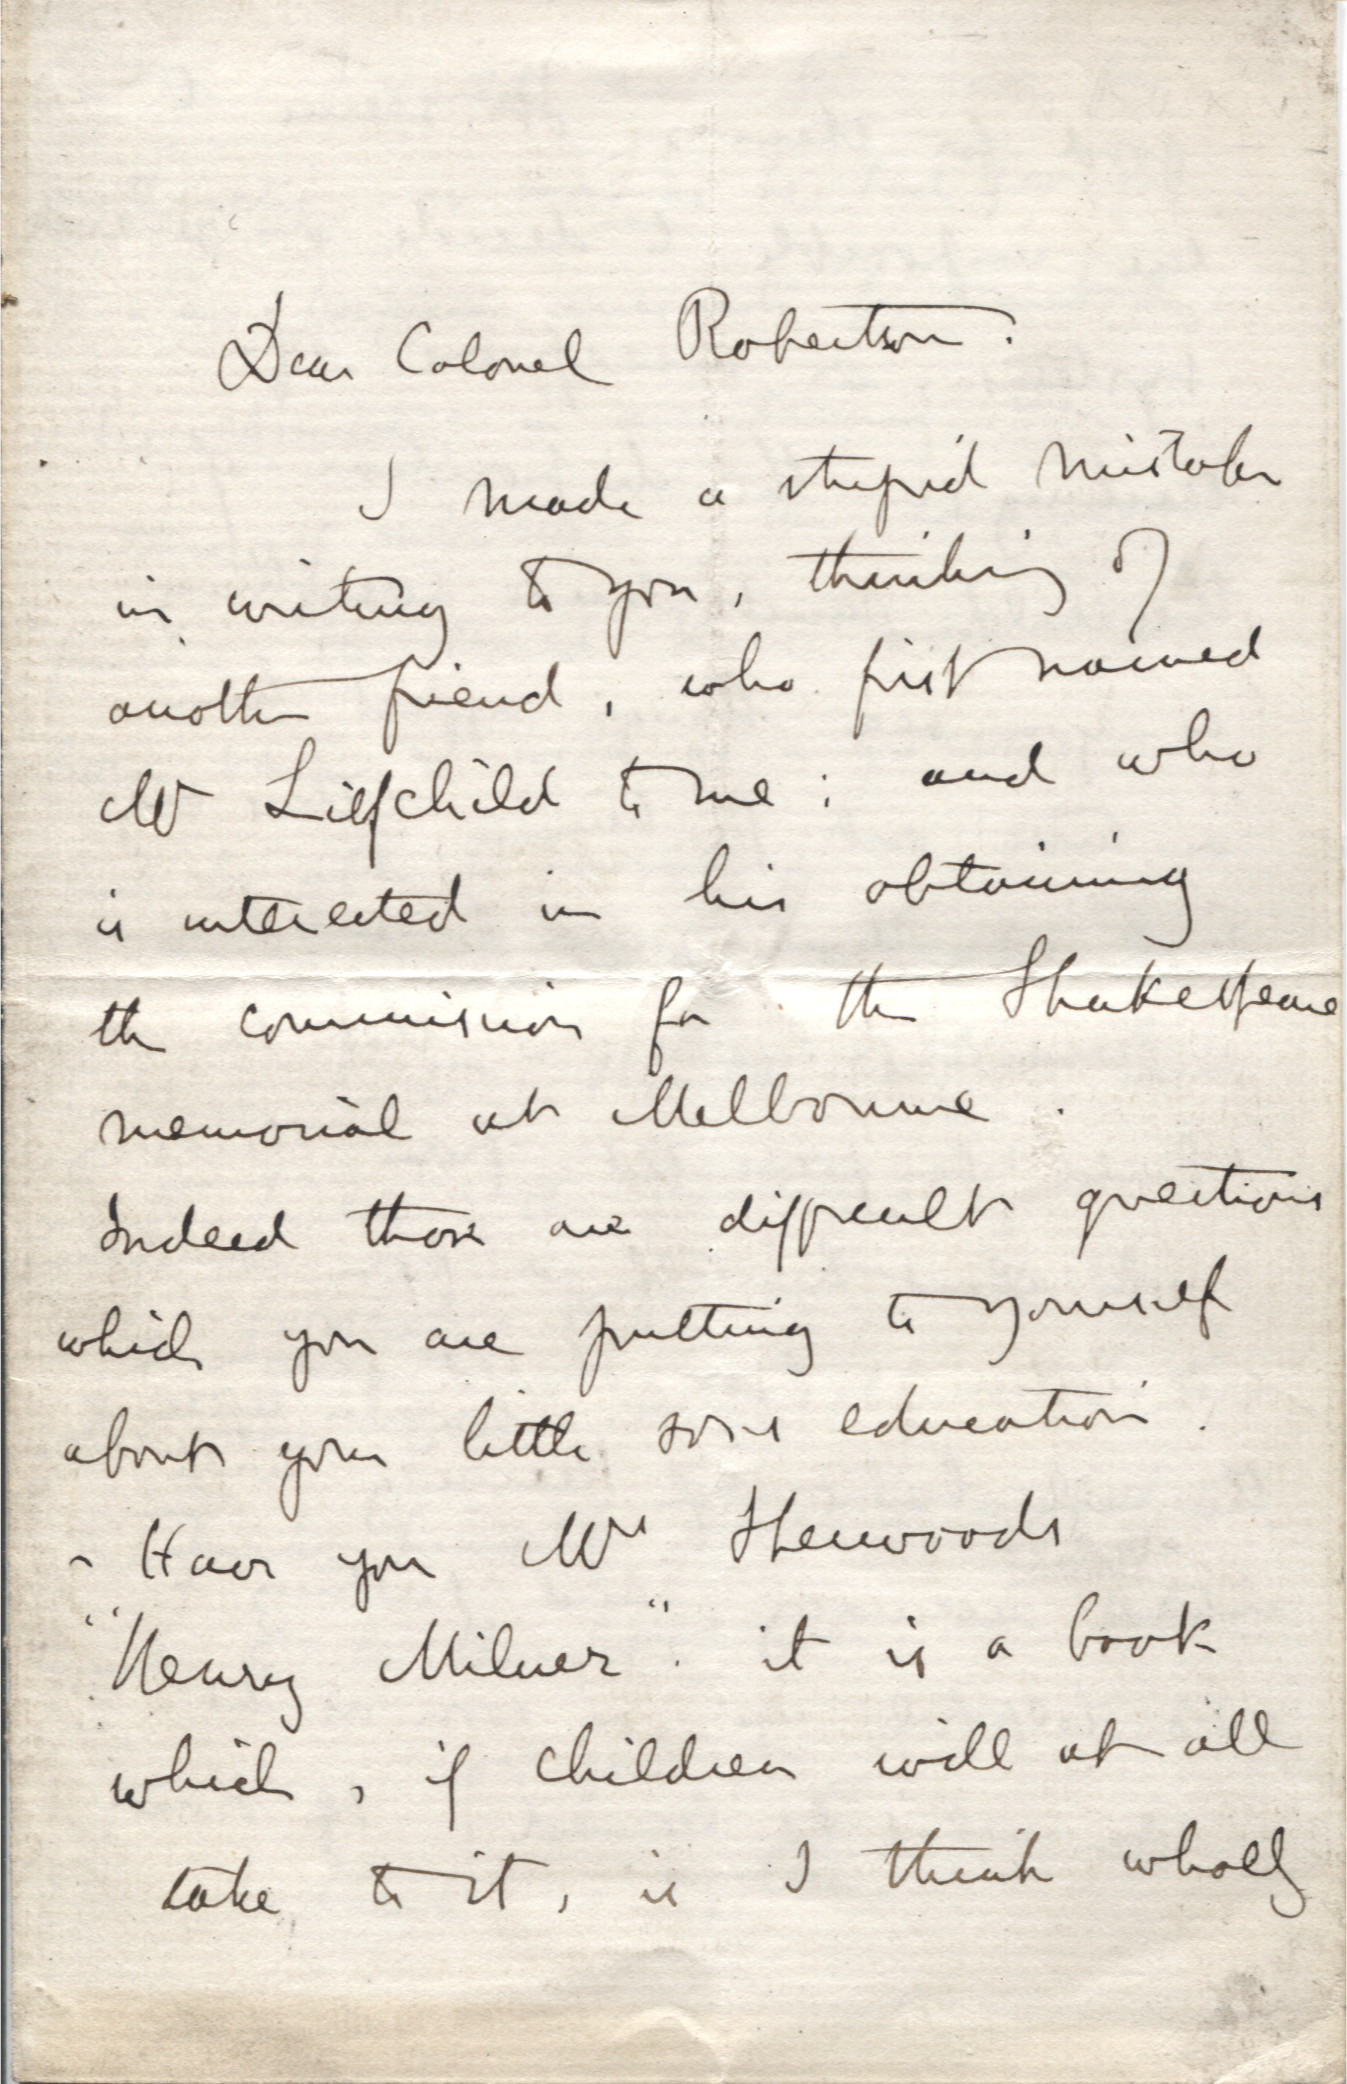 Dear Colonel Robertson.
I made a stupid mistake
in writing to you, thinking of
another friend, who first named
Mr Liefchild to me; and who
is interested in his obtaining
the commission for the Shakespeare
memorial at Melbourne.
Indeed those are difficult questions
which you are putting to yourself
about your little sons education.
- Have you Mrs Sherwoods
"Henry Milner". it is a book
which, if children will at all
take to it, is I think wholly